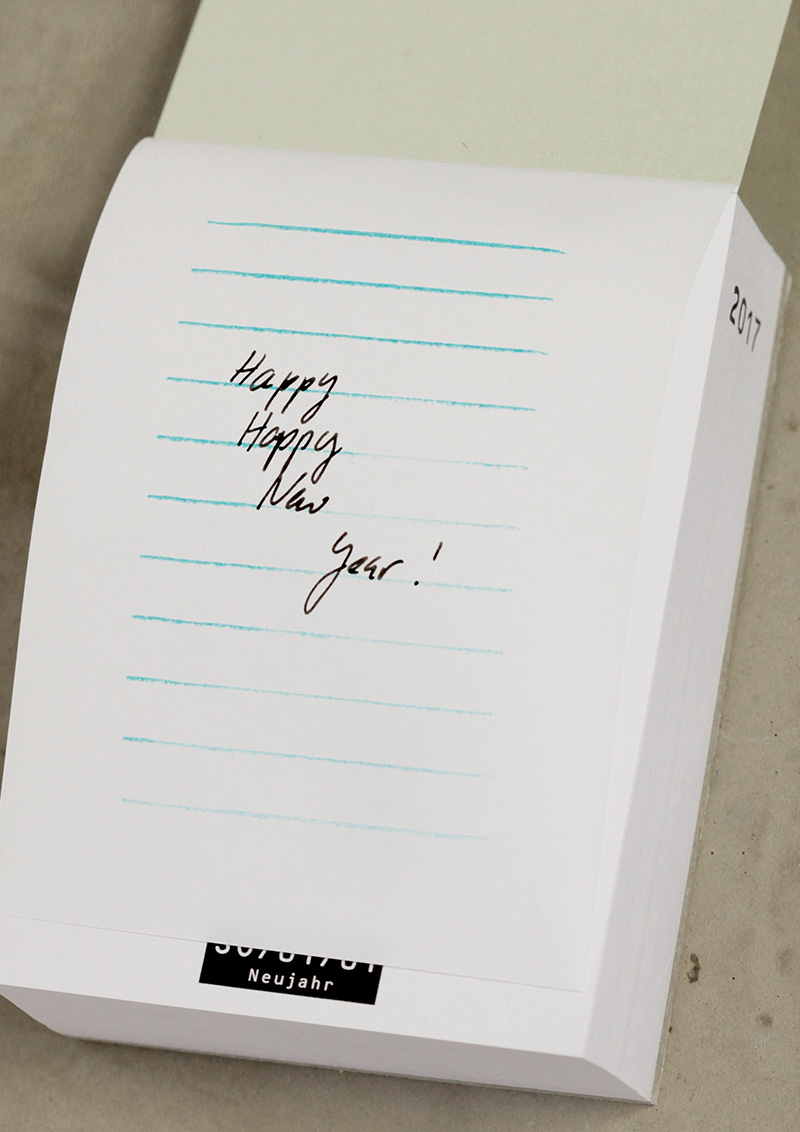 Happy
Happy
New
Year!
2017
Neujahr